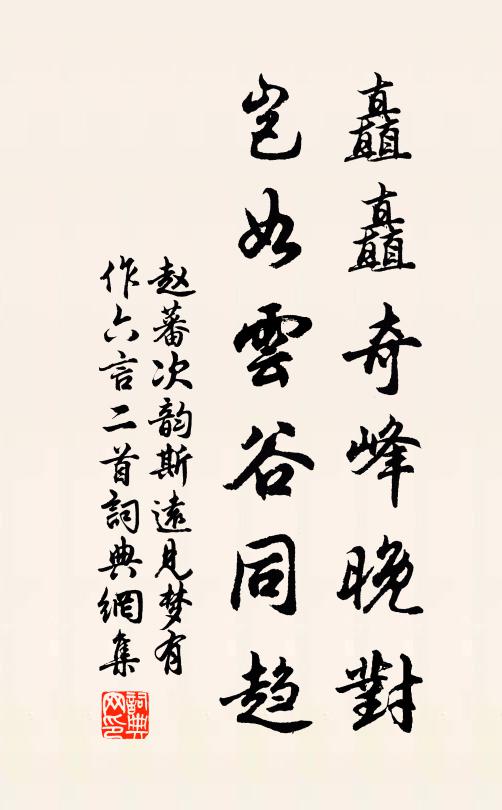 矗矗奇峰晚對
豈如雲谷同趨
赵蕃次韵斯遠見梦有
作六言二首詞典網集
詞典网印